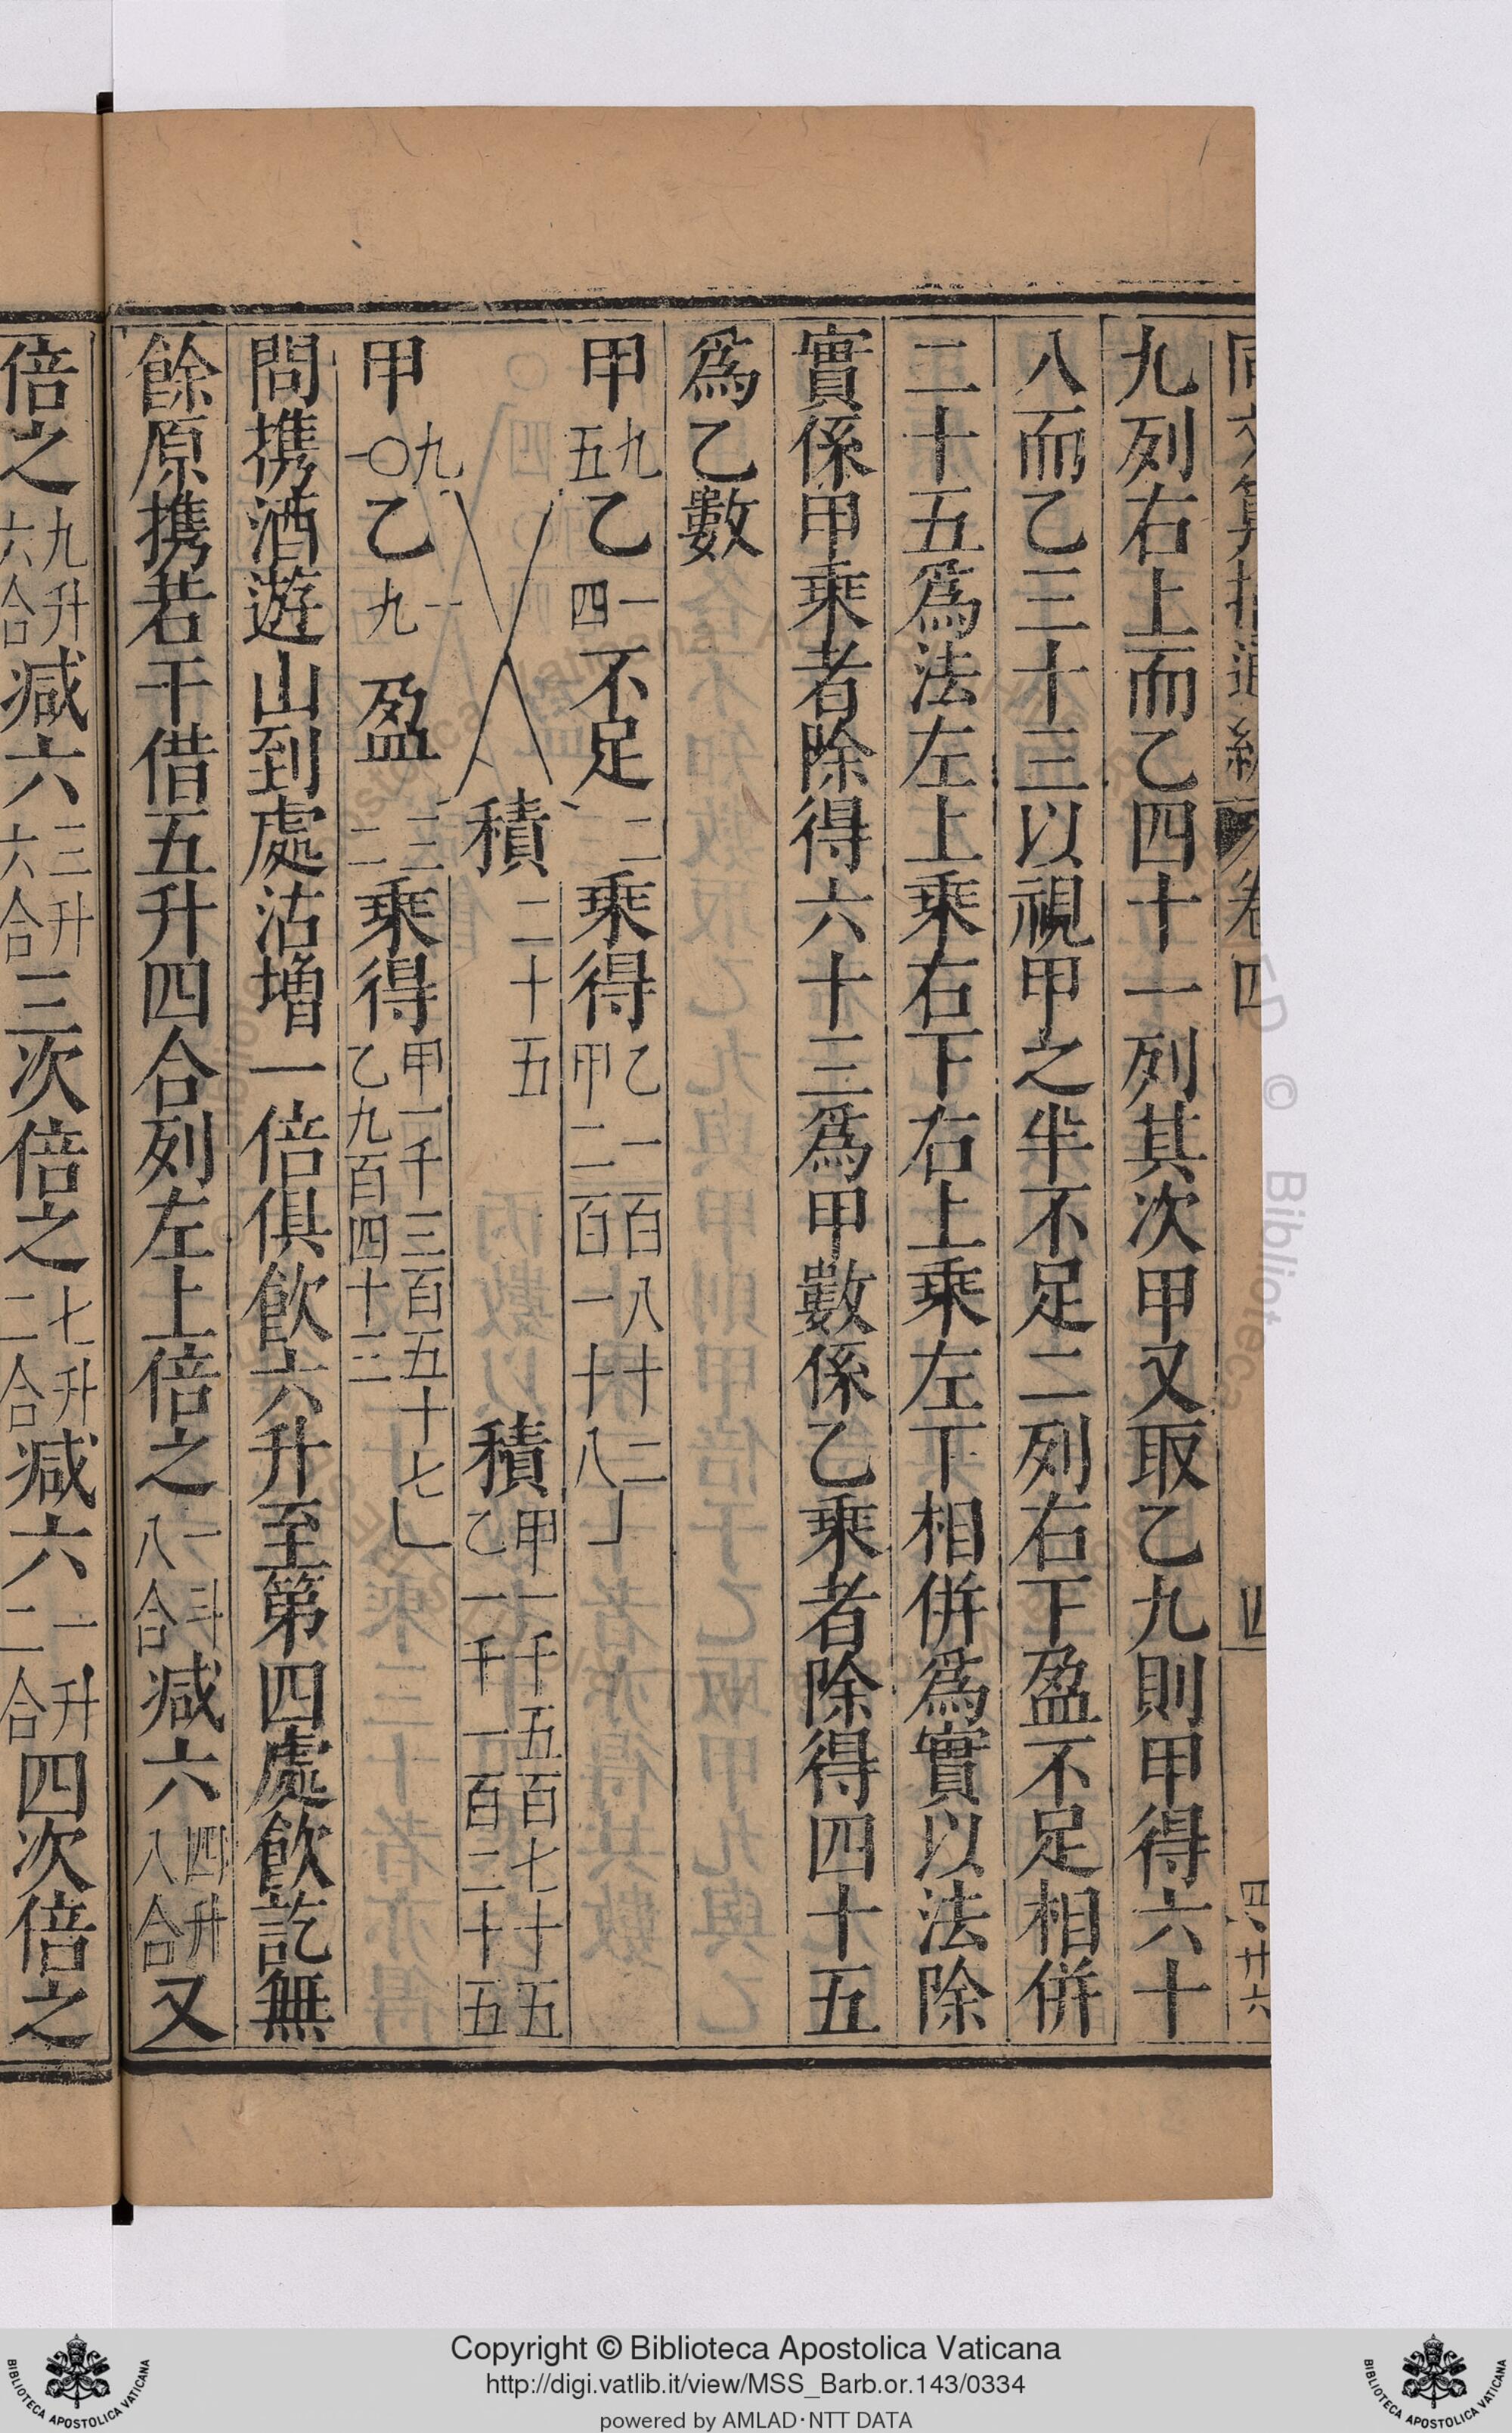 同文算指通編 卷四
四廿六
九列右上而乙四十一列其次甲又取乙九則甲得六十
八而乙三十三以視甲之半不足二列右下盈不足相併
二十五爲法左上乘右下右上乘左下相併爲實以法除
實係甲乘者除得六十三爲甲數係乙乘者除得四十五
爲乙數
甲 九五 乙 一四 不足 二 乘得 乙一百八十二 甲二百一十八
積 二十五 積 甲一千五百七十五 乙一千一百二十五
甲 九一〇 乙 一九 盈 二三二 乘得 甲一千三百五十七 乙九百四十三
問携酒遊山到處沽增一倍俱飲六升至第四處飲訖無
餘原携若干借五升四合列左上倍之一斗八合減六四升八合又
倍之九升六合減六三升六合三次倍之七升二合減六一升二合四次倍之
Copyright © Biblioteca Apostolica Vaticana
http://digi.vatlib.it/view/MSS_Barb.or.143/0334
powered by AMLAD·NTT DATA
BIBLIOTECA APOSTOLICA VATICANA
BIBLIOTECA APOSTOLICA VATICANA